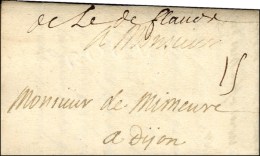 de Le de flandre
A Monsieur
15
Monsieur de Mimeure
a dijon